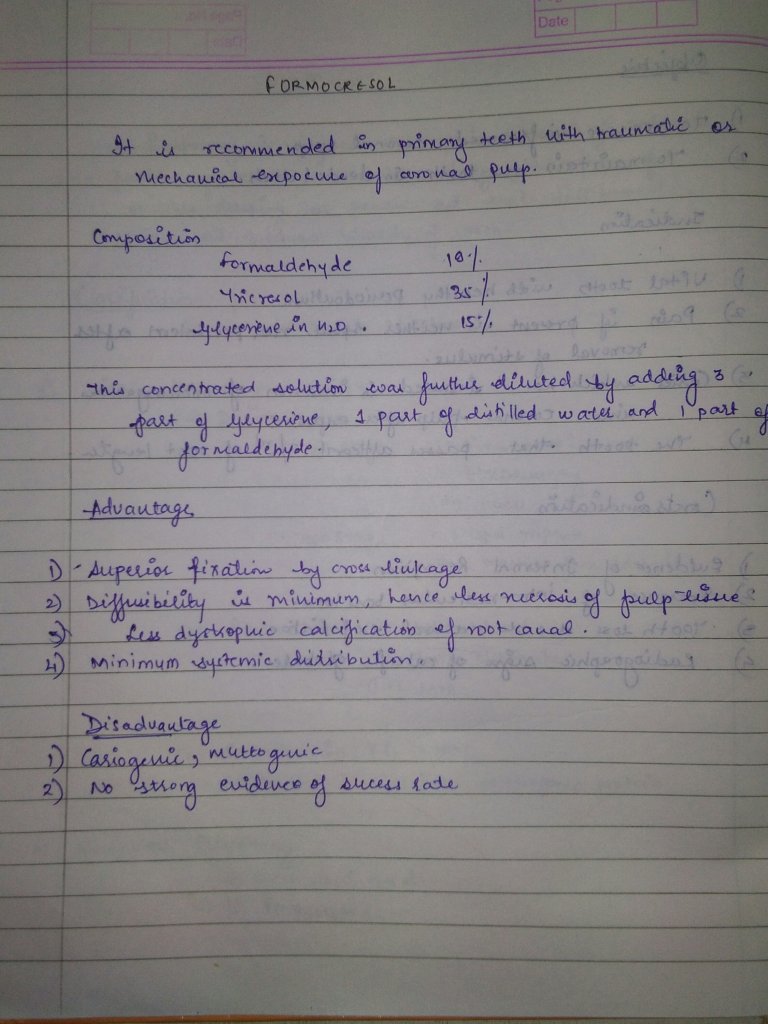 Date
FORMOCRESOL
It is recommended in primary teeth with traumatic or
mechanical expocure of coronal pulp.
Composition
formaldehyde 19%
Tricresol 35%
Glyceriene in H2O. 15%
This concentrated solution was further diluted by addeng 3
part of Glyceriene, 1 part of distilled water and 1 part of
formaldehyde.
Advantage
1) Superior fixation by cross linkage
2) Diffusibility is minimum, hence less necrosis of pulp tissue
3) Less dystrophic calcification of root canal.
4) Minimum systemic distribution.
Disadvantage
1) Cariogenic, muttogenic
2) No strong evidence of sucess rate